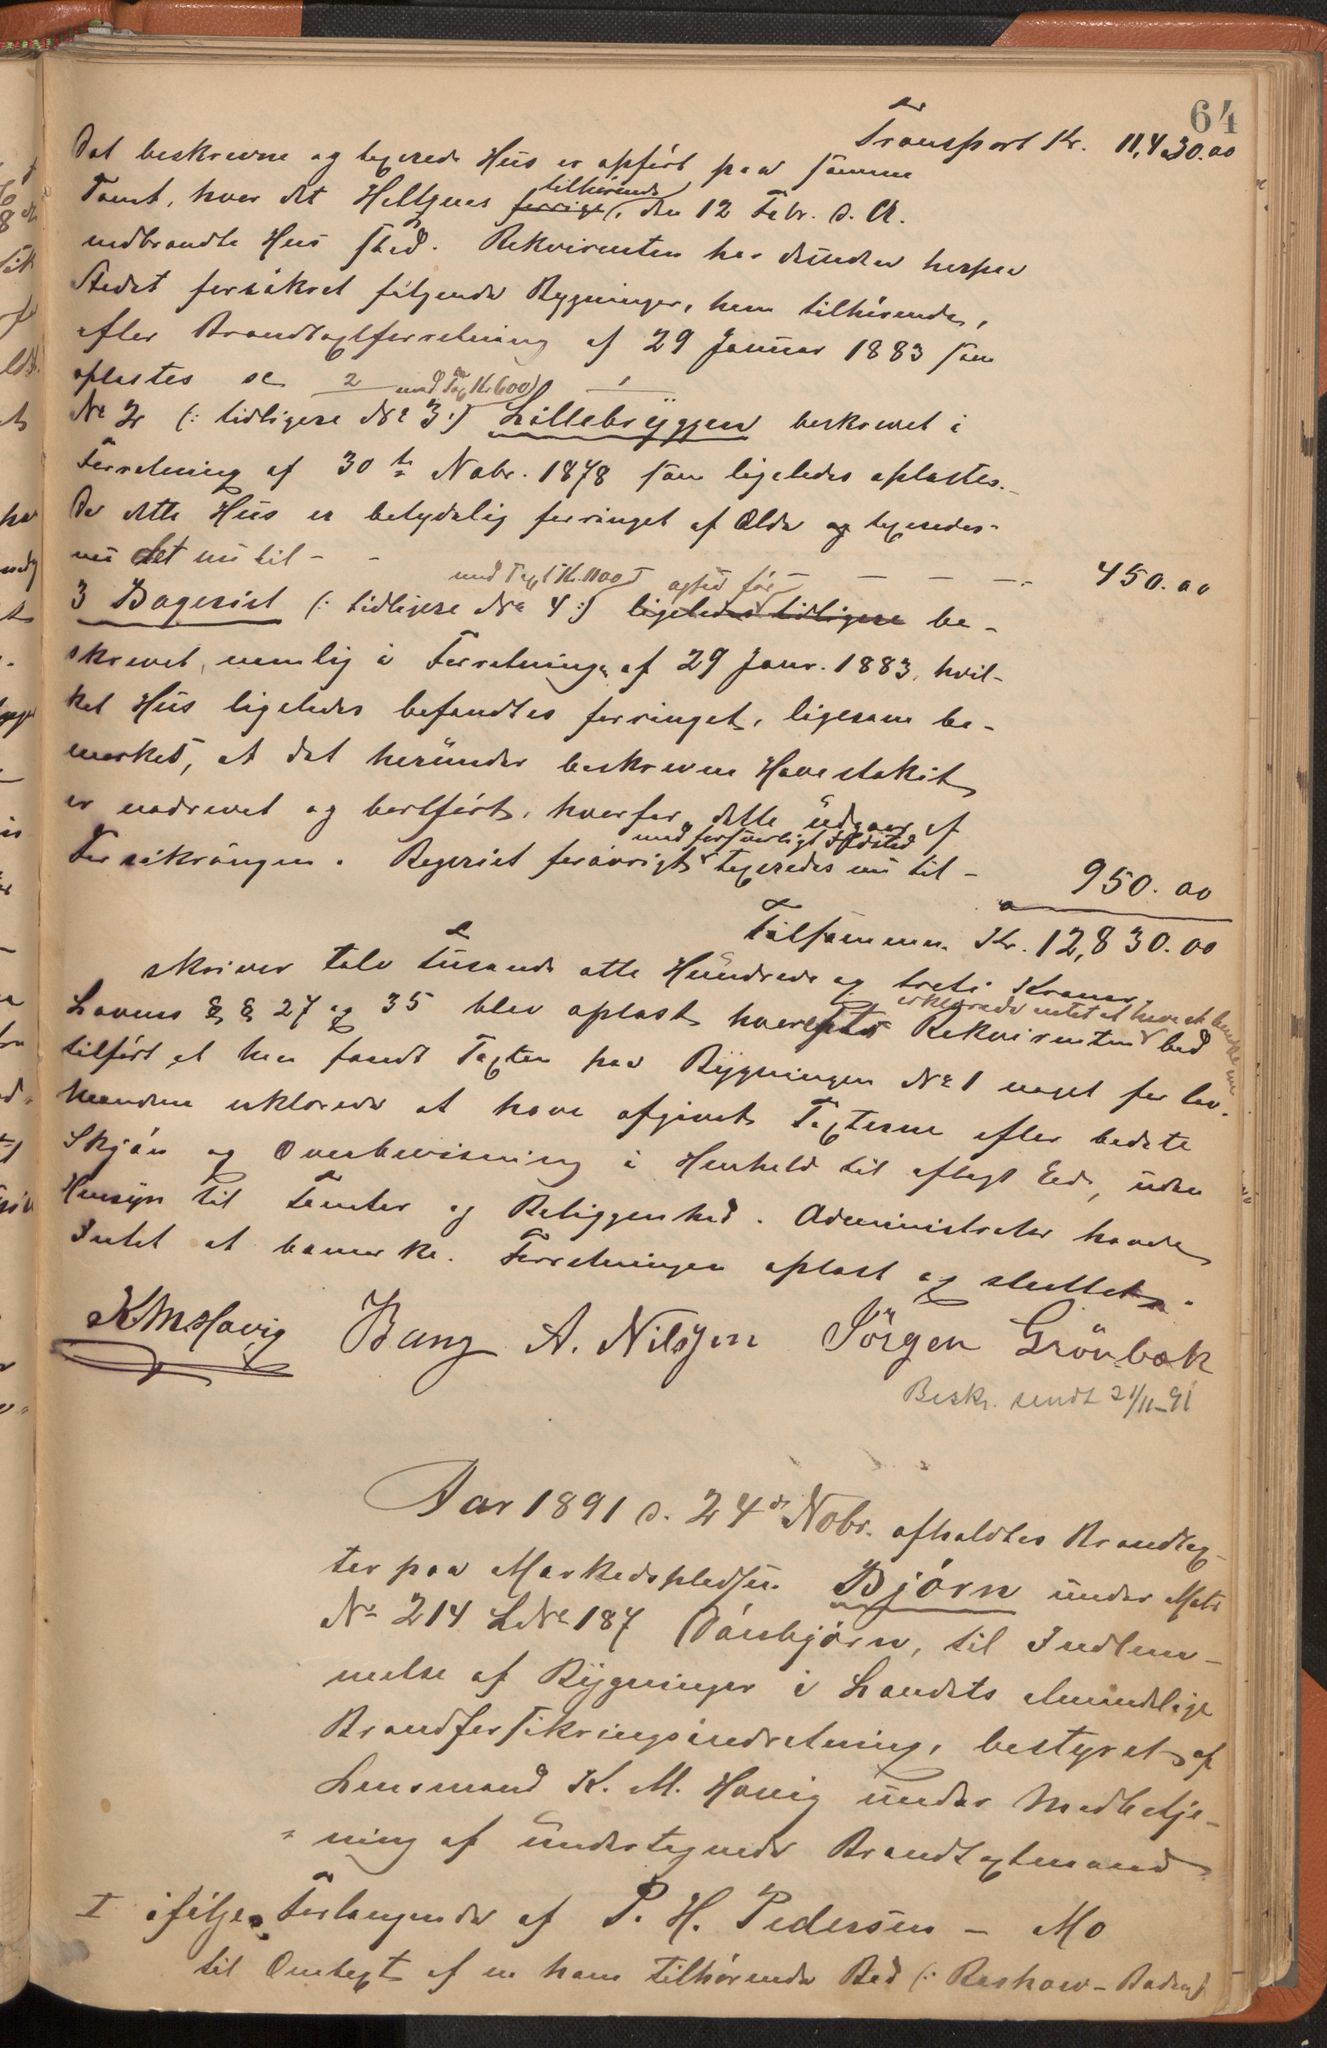 64
Transport Kr. 11,430.00
Det beskrevne og taxerede Hus er opført paa samme
Tomt, hvor det Heltzens forrige tilhørende, den 12 Febr. d. A.
nedbrændte Hus stod. Rekvirenten har desuden herpaa
Stedet forsikret følgende Bygninger, ham tilhørende,
efter Brandtaxtforretning af 29 Januar 1883 som
oplæstes se
2 med Tax Kr 600
No 2 (: tidligere No 3 :) Lillebryggen beskrevet i
Forretning af 30te Nobr. 1878 som ligeledes oplæstes.
Da dette Hus er betydelig forringet af Ælde og taxeredes
nu det nu til - - - - - 450.00
med Taxt Kr. 1100
3 Bageriet (: tidligere No 4 :) ligeledes tidligere be-
skrevet, nemlig i Forretning af 29 Janr. 1883, hvil-
ket Hus ligeledes befandtes forringet, ligesom be-
mærket, at det herunder beskrevne Havestakit
er nedrevet og bortført, hvorfor dette udgaar af
med forsvarligt Ildsted
Forsikringen. Bageriet forøvrigt taxeredes nu til - 950.00
Tilsammen Kr. 12,830.00
skriver tolv Tusende otte Hundrede og treti Kroner.
erklærede intet at have at bemærke
Lovens §§ 27 og 35 blev oplæst hvorefter Rekvirenten bad
tilført at han fandt Taxten paa Bygningen No 1 noget for lav.
Mændene erklærede at have afgivet Taxterne efter bedste
Skjøn og Overbevisning i Henhold til aflagt Eed, uden
Hensyn til Tomter og Beliggenhed. Administrator havde
Intet at bemærke. Forretningen oplæst og sluttet.
KMHavig Bang A. Nilssen Jörgen Grönbæk
Beskr. sendt 21/11-91
Aar 1891 d. 24de Nobr. afholdtes Brandtax-
ter paa Markedspladsen Bjørn under Matr
No 214 LNo 187 Dønsbjørn, til Indlem-
melse af Bygninger i Landets almindelige
Brandforsikringsindretning, bestyret af
Lensmand K. M. Havig under Medbetje-
ning af undertegnede Brandtaxtmænd
I ifølge Forlangende af P. H. Pedersen - Mo
til Omtaxt af en ham tilhørende Bod (: